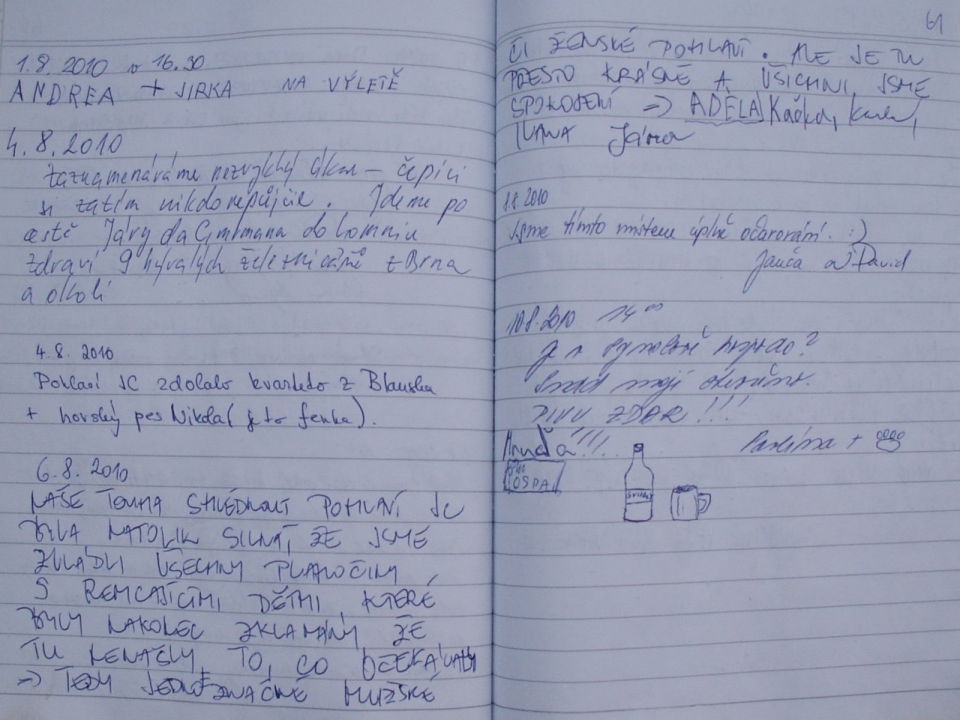 1.8.2010 v 16.30
ANDREA + JIRKA NA VÝLETĚ
4.8.2010
Zaznamenáváme nezvyklý úkaz – čepici
si zatím nikdo nepůjčuje. Jdeme po
cestě Járy da Cimrmana do Lomnice
zdraví 9 bývalých železničářů z Brna
a okolí
4.8. 2010
Pohlaví JC zdolalo kvarteto z Blanska
+ horský pes Nikola (je to fenka).
6.8. 2010
NAŠE TOUHA SHLÉDNOUT POHLAVÍ JC
BYLA NATOLIK SILNÁ, ŽE JSME
ZVLÁDLI VŠECHNY PLAHOČINY
S REMCAJÍCÍMI DĚTMI, KTERÉ
BYLY NAKONEC ZKLAMÁNY, ŽE
TU NENAŠLY TO, CO OČEKÁVALY
=> TEDY JEDNOZNAČNĚ MUŽSKÉ
61
ČI ŽENSKÉ POHLAVÍ. ALE JE TU
PŘESTO KRÁSNĚ A VŠICHNI JSME
SPOKOJENÍ => ADÉLA, Kačka,
IVANA Jára
8.8. 2010
Jsme tímto místem úplně očarováni. :)
Janča a David
10.8.2010 14⁰⁰
Je v
Snad mají otevřeno.
PIVU ZDAR!!!
Pavlína +